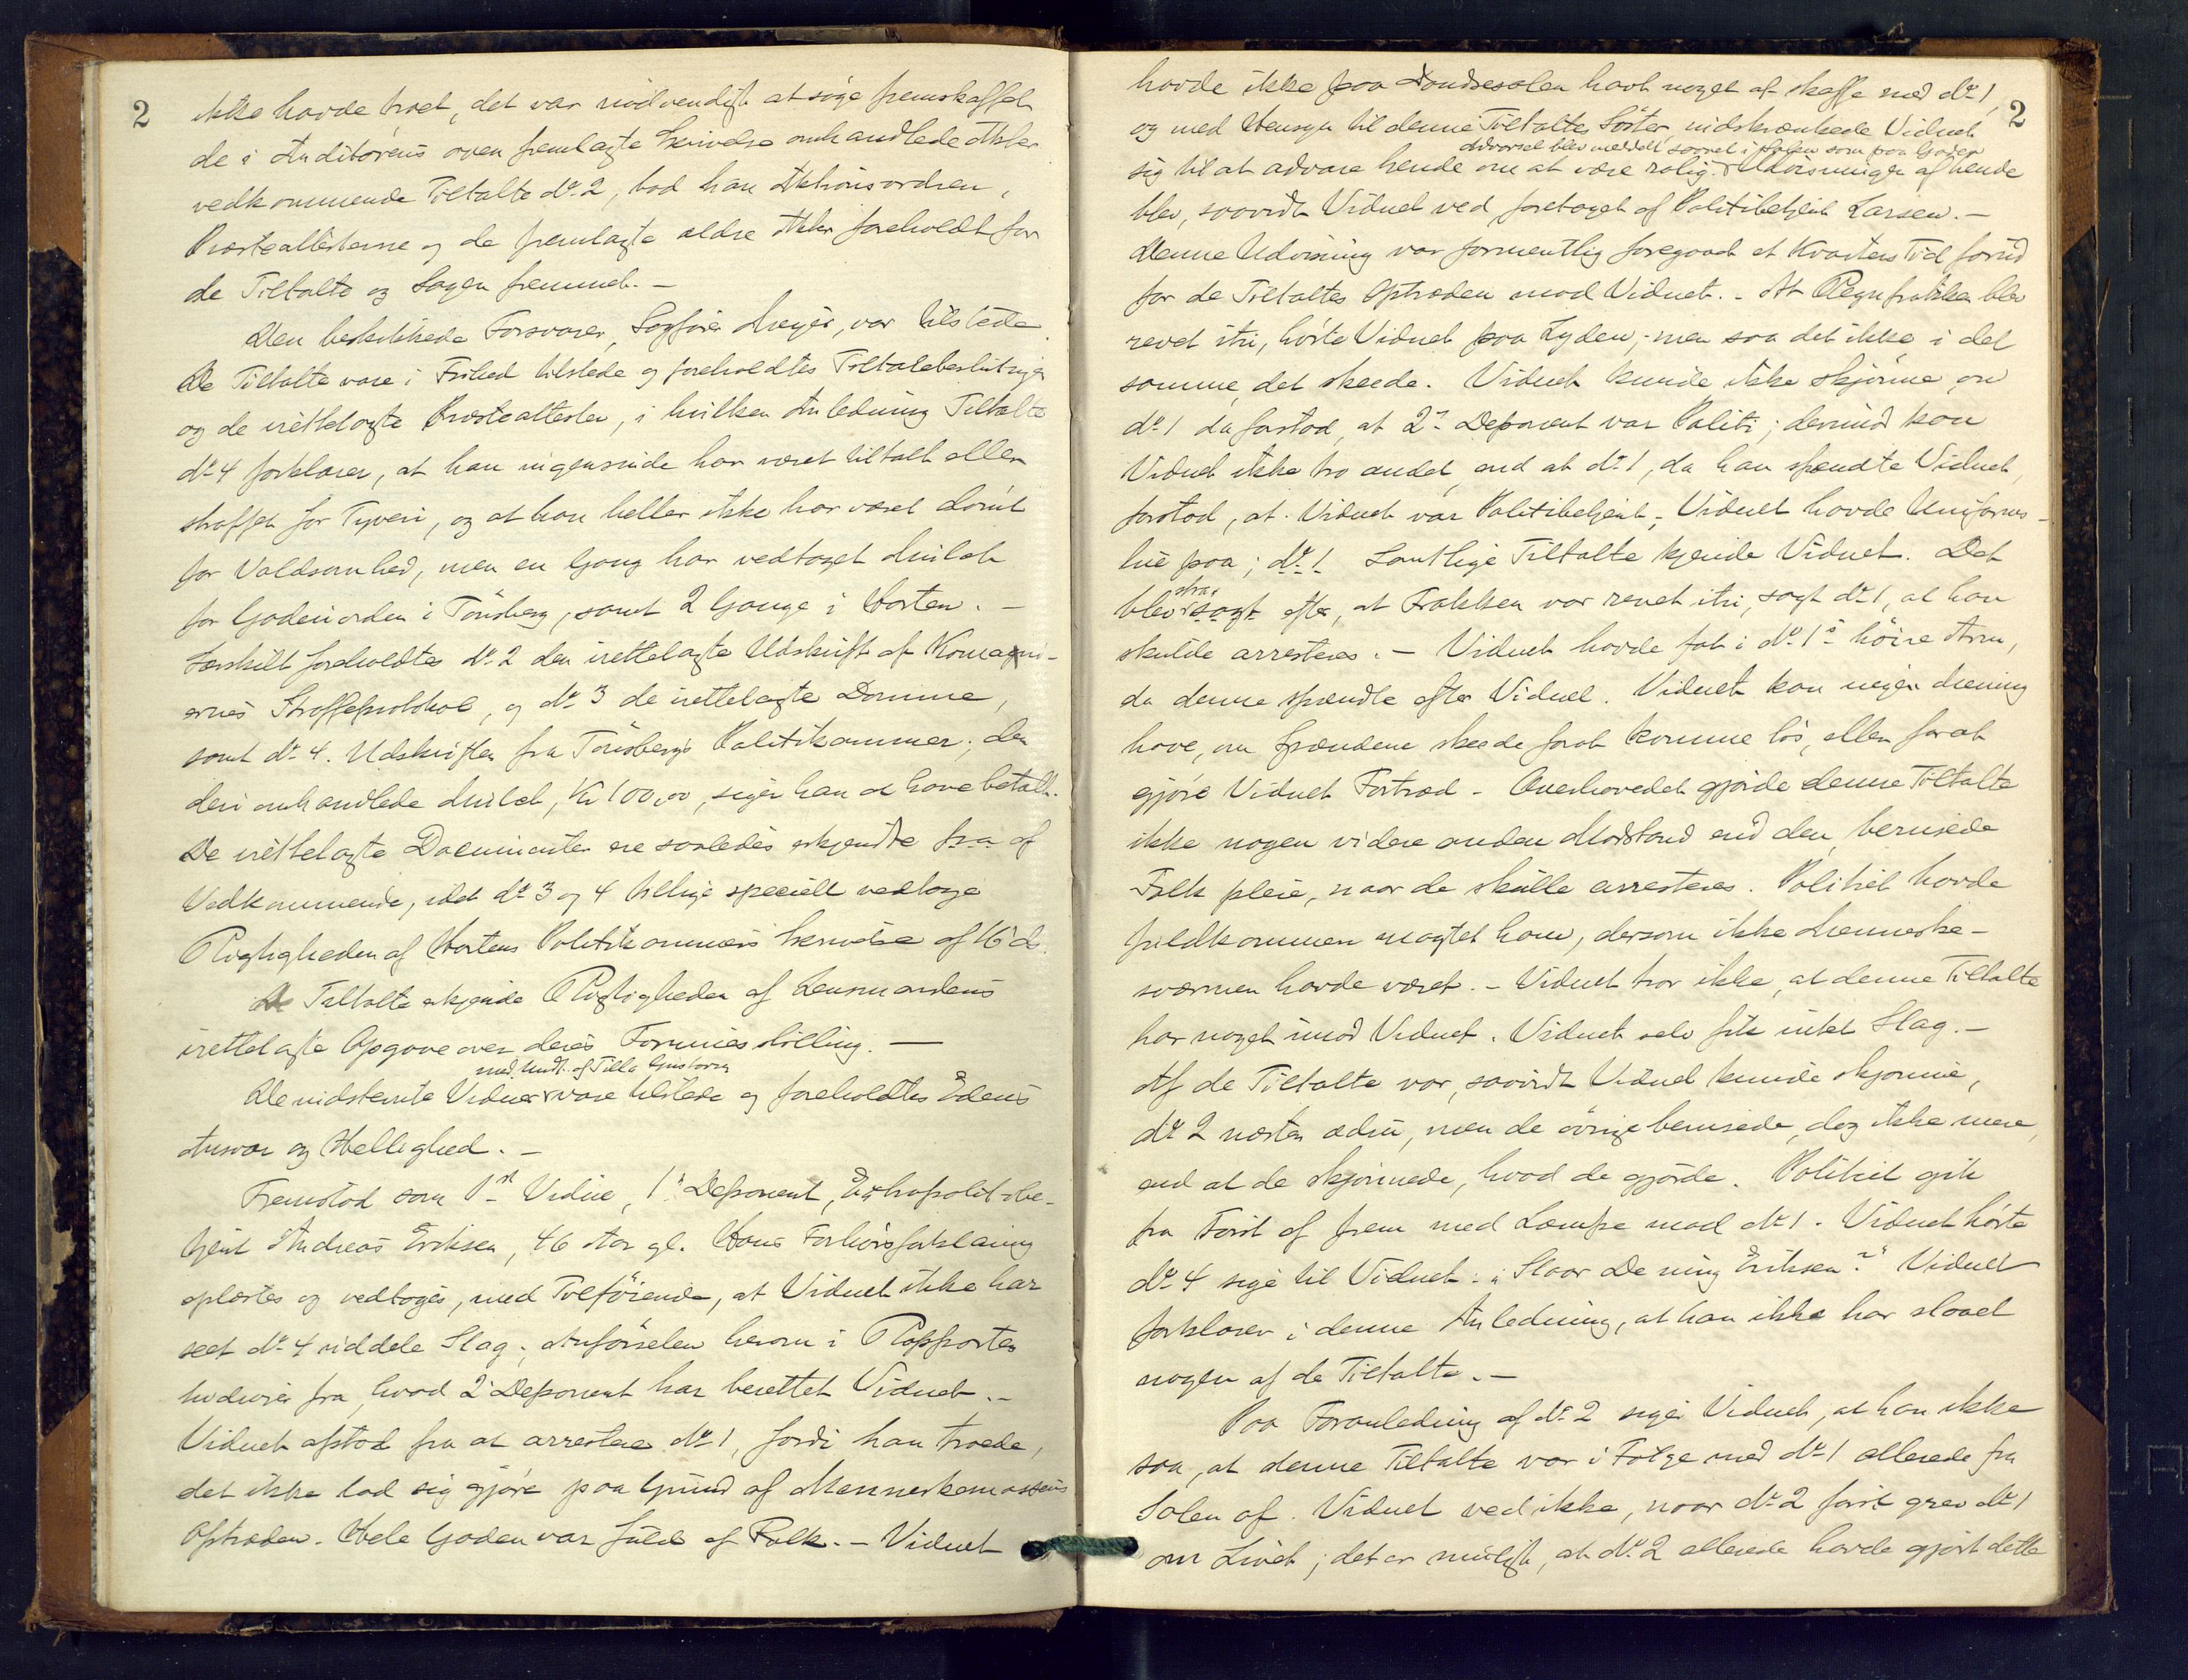 2
ikke havde troet, det var nødvendigt at søge fremskaffet
de i Auditørens oven fremlagte Skrivelse omhandlede Akter
vedkommende Tiltalte No 2, lod han Aktionsordren,
Præsteattesterne og de fremlagte ældre Akter foreholdt for
de Tiltalte og Sagen fremmet. -
Den beskikkede Forsvarer, Sagfører Meyer, var tilstede
De Tiltalte vare i Frihed tilstede og foreholdtes Tiltalebeslutningen
og de irettelagte Præsteattester, i hvilken Anledning Tiltalte
No 4 forklarer, at han ingensinde har været tiltalt eller
straffet for Tyveri, og at han heller ikke har været dømt
for Voldsomhed, men en Gang har vedtaget Mulct
for Gadeuorden i Tønsberg, samt 2 Gange i Horten. -
Særskilt foreholdtes No 2 den irettelagte Udskrift af Kompagni-
ernes Straffeprotokol, og No 3 de irettelagte Domme,
samt No 4. Udskriften fra Tønsbergs Politikammer; den
deri omhandlede Mulct, Kr 100,00, siger han at have betalt.
De irettelagte Documenter ere saaledes erkjendte af
Vedkommende, idet No 3 og 4 tillige specielt vedtoge
Rigtigheden af Hortens Politikammers Skrivelse af 16 ds.
De Tiltalte erkjende Rigtigheden af Lensmandens
irettelagte Opgave over deres Formuesstilling. -
med Undt. af Tilla Gustavsen
De indstevnte Vidner vare tilstede og foreholdtes Edens
Ansvar og Hellighed. -
Fremstod som 1ste Vidne, 1ste Deponent, Extrapolitibe-
tjent Andreas Eriksen, 46 Aar gl. Hans Forhørsforklaring
oplæstes og vedtoges, med Tilføiende, at Vidnet ikke har
seet No 4 uddele Slag; Anførselen herom i Rapporten
hidrører fra, hvad 2 Deponent har berettet Vidnet. -
Vidnet afstod fra at arrestere No 1, fordi han troede,
det ikke lod sig gjøre paa Grund af Menneskemassens
Optræden. Hele Gaden var fuld af Folk. - Vidnet
2
havde ikke paa Dandsesalen havt noget at skaffe med No 1,
og med Hensyn til denne Tiltaltes Søster indskrænkede Vidnet
Advarsel blev meddelt saavel i Salen som paa Gaden
sig til at advare hende om at være rolig. Udvisningen af hende
blev, saavidt Vidnet ved foretaget af Politibetjent Larsen. -
Denne Udvisning var formentlig foregaaet et Kvarters Tid forud
for de Tiltaltes Optræden mod Vidnet. - At Regnfrakken blev
revet itu, hørte Vidnet paa Lyden, men saa det ikke i det
samme, det skeede. Vidnet kunde ikke skjønne, om
No 1 da forstod, at 2 Deponent var Politi; derimod kan
Vidnet ikke tro andet, end at No 1, da han spændte Vidnet,
forstod, at Vidnet var Politibetjent; Vidnet havde Uniforms-
hue paa; No 1 Samtlige Tiltalte kjende Vidnet. Det
strax
blev sagt efter, at Frakken var revet itu, sagt No 1, at han
skulde arresteres. - Vidnet havde fat i No 1's høire Arm,
da denne spændte efter Vidnet. Vidnet kan ingen Mening
have, om Spændene skeede forat komme løs, eller forat
gjøre Vidnet Fortræd - Overhovedet gjorde denne Tiltalte
ikke nogen videre anden Modstand end den, berusede
Folk pleie, naar de skulle arresteres. Politiet havde
fuldkommen magtet ham, dersom ikke Menneske-
sværmen havde været. - Vidnet tror ikke, at denne Tiltalte
har noget imod Vidnet. Vidnet selv fik intet Slag. -
Af de Tiltalte var, saavidt Vidnet kunde skjønne,
No 2 næsten ædru, men de øvrige berusede, dog ikke mere,
end at de skjønnede, hvad de gjorde. Politiet gik
fra Først af frem med Læmpe mod No 1. Vidnet hørte
No 4 sige til Vidnet: "Slaar De mig Eriksen?" Vidnet
forklarer i denne Anledning, at han ikke har slaaet
nogen af de Tiltalte. -
Paa Foranledning af No 2 siger Vidnet, at han ikke
saa, at denne Tiltalte var i Følge med No 1 allerede fra
Salen af. Vidnet ved ikke, naar No 2 først greb No 1
om Livet; det er muligt, at No 2 allerede havde gjort dette